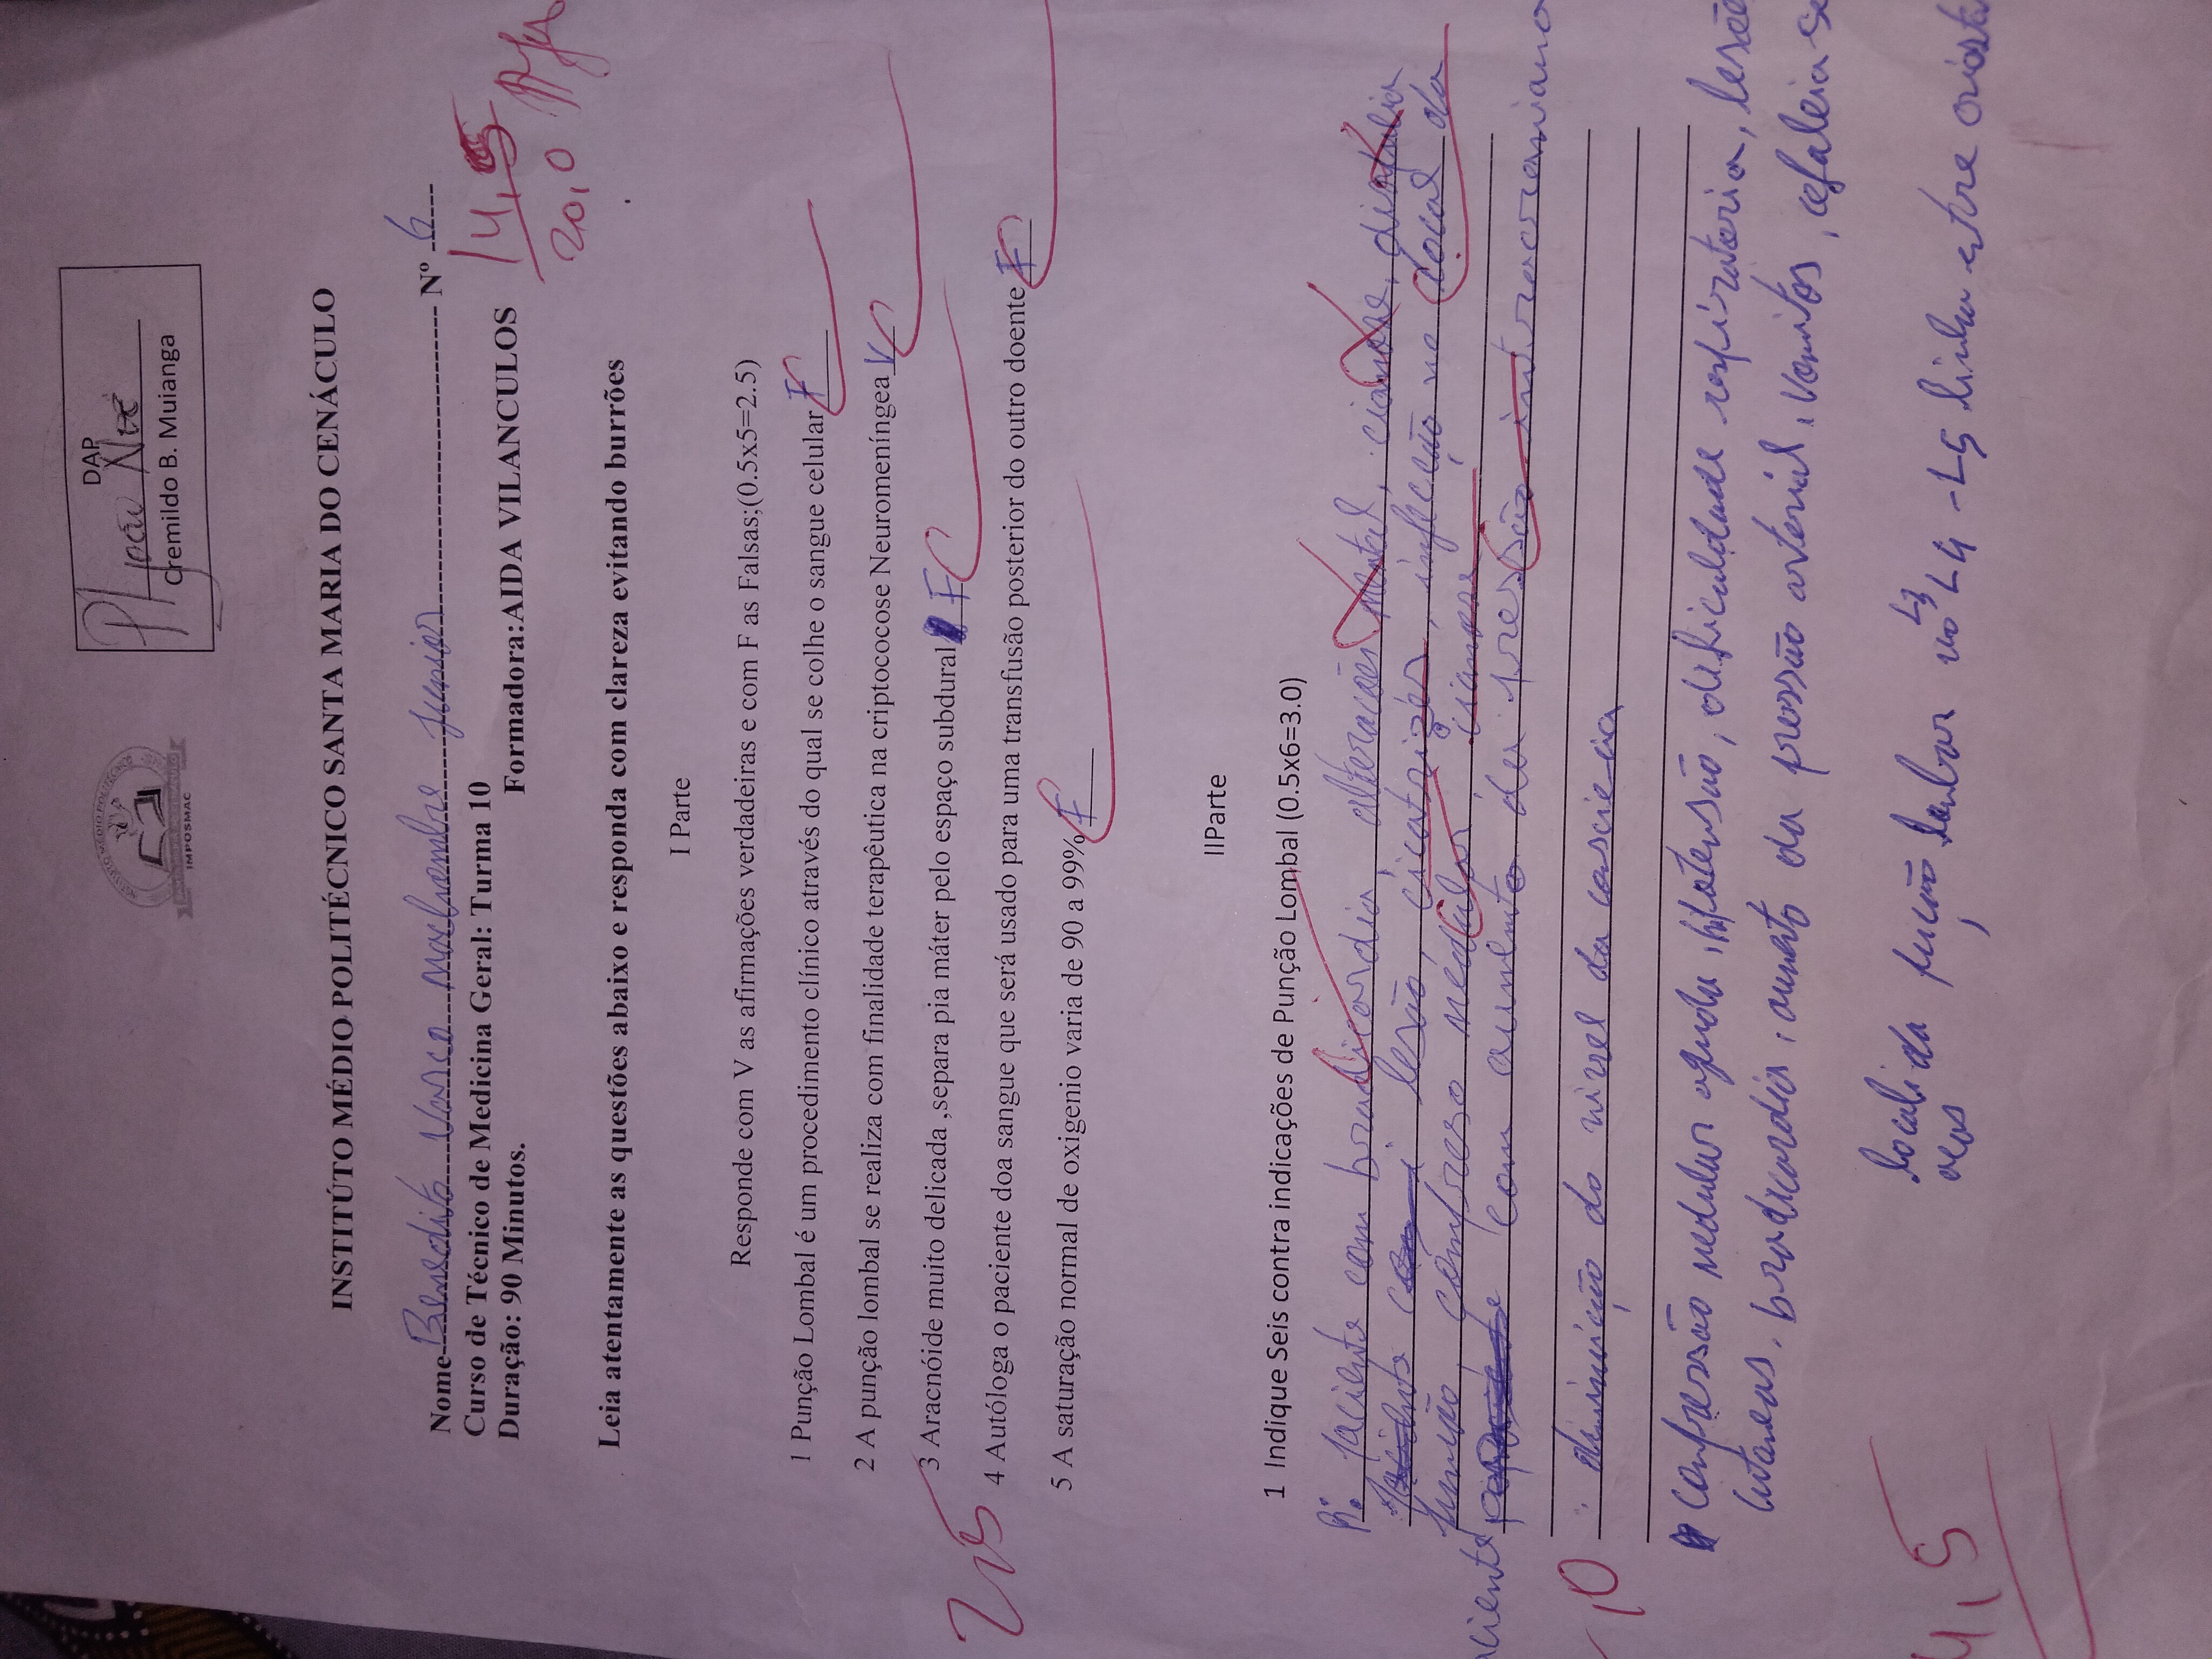 INSTITUTO MÉDIO POLITÉCNICO
SANTA MARIA DO CENÁCULO
IMPOSMAC
DAP
P/ João
Cremildo B. Muianga
INSTITÚTO MÉDIO POLITÉCNICO SANTA MARIA DO CENÁCULO
Nome Benedito Vasco Machombe Junior Nº 6
Curso de Técnico de Medicina Geral: Turma 10
Duração: 90 Minutos. Formadora:AIDA VILANCULOS
14,5
20,0
Leia atentamente as questões abaixo e responda com clareza evitando burrões
I Parte
Responde com V as afirmações verdadeiras e com F as Falsas;(0.5x5=2.5)
1 Punção Lombal é um procedimento clínico através do qual se colhe o sangue celular F
2 A punção lombal se realiza com finalidade terapêutica na criptococose Neuromeníngea V
3 Aracnóide muito delicada ,separa pia máter pelo espaço subdural F
2,5
4 Autóloga o paciente doa sangue que será usado para uma transfusão posterior do outro doente F
5 A saturação normal de oxigenio varia de 90 a 99% F
IIParte
1 Indique Seis contra indicações de Punção Lombal (0.5x6=3.0)
R: paciente com bradicardia, alterações mental, cianose,
lesão, cicatrizes, infecção no local da
punção, compreso medular, cianose
com aumento da pressão intracraniano
,0
diminuição do nivel da
compressão medular aguda, hipotensão, dificuldade respiratoria, lesõe
cutaneas, bradicardia, aumento da pressão arterial, vomitos, cefaleia se
locali da pução lombar no L3 L4 - L5 linha entre crista
4,5